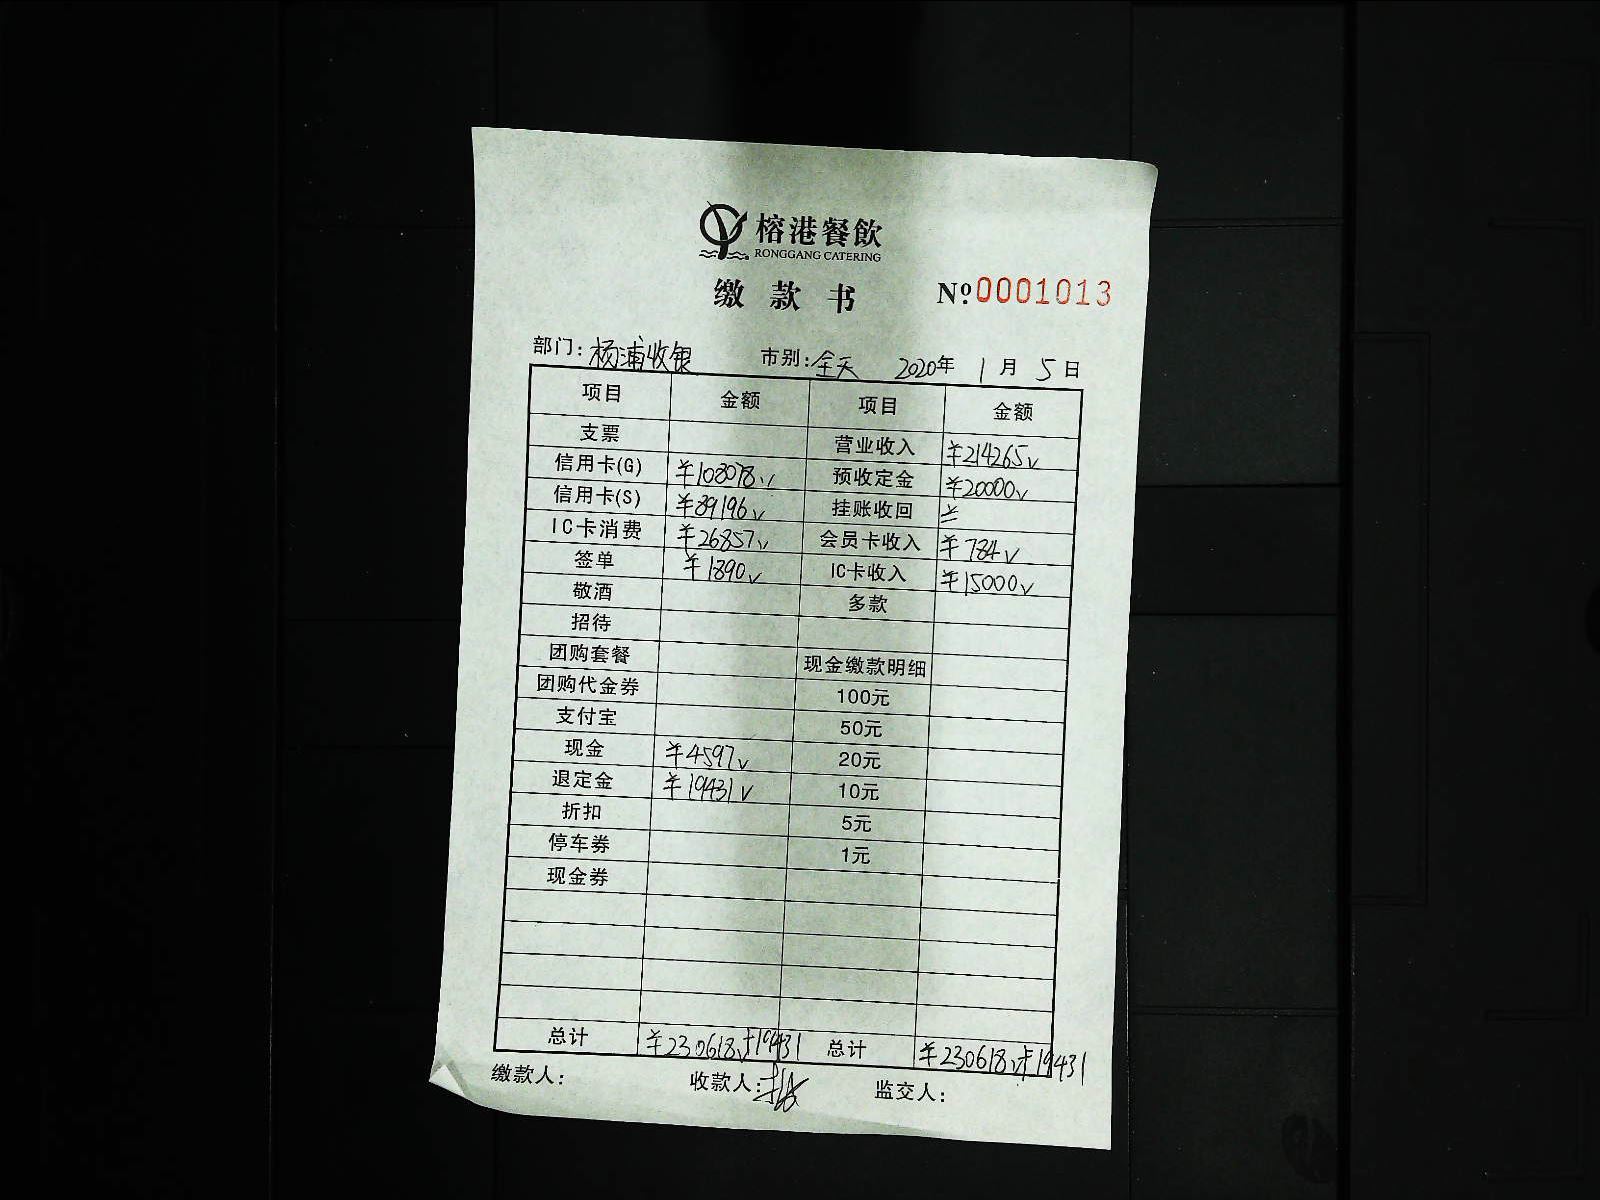 榕港餐飲
RONGGANG CATERING
缴款书 №0001013
部门：杨浦收银 市别：全天 2020年1月5日
项目 金额 项目 金额
支票 营业收入 ¥214265√
信用卡(G) ¥108078√ 预收定金 ¥20000√
信用卡(S) ¥89196√ 挂账收回
IC卡消费 ¥26857√ 会员卡收入 ¥784√
签单 ¥1890√ IC卡收入 ¥15000√
敬酒 多款
招待
团购套餐 现金缴款明细
团购代金券 100元
支付宝 50元
现金 ¥4597√ 20元
退定金 ¥19431√ 10元
折扣 5元
停车券 1元
现金券
总计 ¥230618√+19431 总计 ¥230618√+19431
缴款人： 收款人： 监交人：